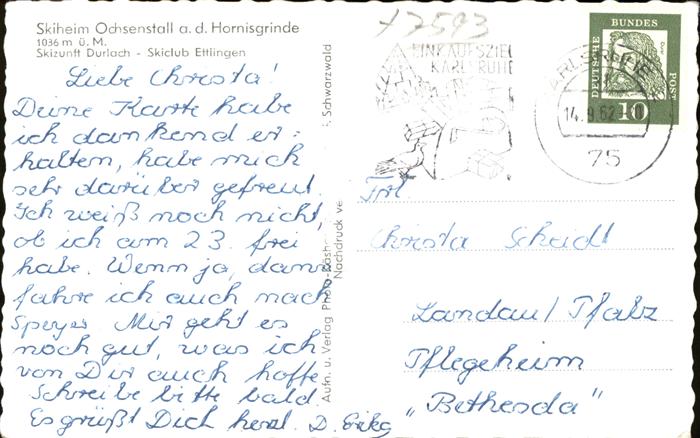 Skiheim Ochsenstall a. d. Hornisgrinde
1036 m ü. M.
Skizunft Durlach - Skiclub Ettlingen
Liebe Christa!
Deine Karte habe
ich dankend er=
halten, habe mich
sehr darüber gefreut.
Ich weiß noch nicht,
ob ich am 23. frei
habe. Wenn ja, dann
fahre ich auch nach
Speyer. Mir geht es
noch gut, was ich
von Dir auch hoffe.
Schreibe bitte bald.
Es grüßt Dich herzl. D. Erika
Aufn. u. Verlag Photo-Bäsh
Schwarzwald
Nachdruck ve
+7593
EINKAUFSZIEL
KARLSRUHE
KARLSRUHE
14.9.62
75
DEUTSCHE
BUNDES
POST
10
Frl.
Christa Scheidt
Landau/Pfalz
Pflegeheim
„Bethesda"